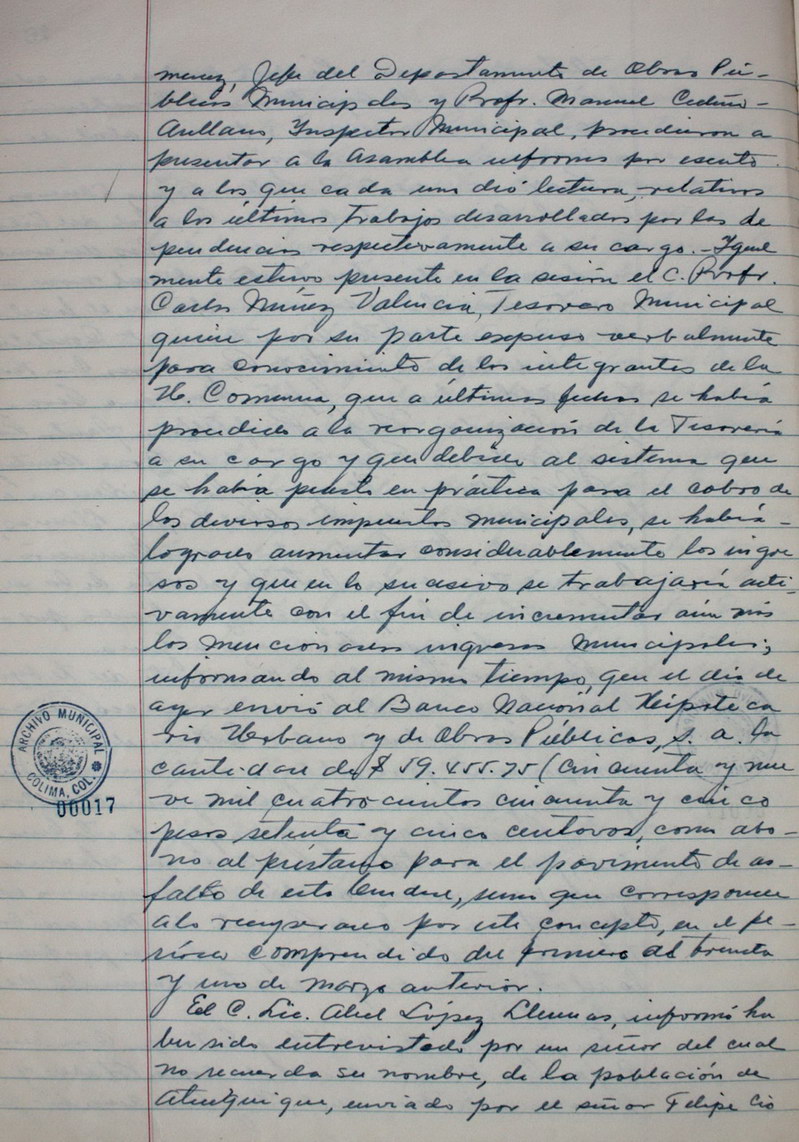 menez, Jefe del Departamento de Obras Pú-
blicas Municipales y Profr. Manuel Cedeño-
Arellano, Inspector Municipal, procedieron a
presentar a la Asamblea informes por escrito
y a los que cada uno dió lectura, relativos
a los últimos trabajos desarrollados por las de
pendencias respectivamente a su cargo.- Igual
mente estuvo presente en la sesión el C. Profr.
Carlos Núñez Valencia, Tesorero Municipal
quien por su parte expuso verbalmente
para conocimiento de los integrantes de la
H. Comuna, que a últimas fechas se había
procedido a la reorganización de la Tesorería
a su cargo y que debido al sistema que
se había puesto en práctica para el cobro de
los diversos impuestos municipales, se había-
logrado aumentar considerablemente los ingre
sos y que en lo sucesivo se trabajaría acti-
vamente con el fin de incrementar aún más
los mencionados ingresos municipales;
informando al mismo tiempo que el día de
ayer envió al Banco Nacional Hipoteca
rio Urbano y de Obras Públicas, S. A. la
cantidad de $ 59.455.75 (Cincuenta y nue
ve mil cuatrocientos cincuenta y cinco
pesos setenta y cinco centavos, como abo-
no al préstamo para el pavimento de as-
falto de esta Ciudad, suma que corresponde
a lo recuperado por este concepto, en el pe-
ríodo comprendido del primero al treinta
y uno de marzo anterior.
El C. Lic. Abel López Llerenas, informó ha
ber sido entrevistado por un señor del cual
no recuerda su nombre, de la población de
Atenquique, enviado por el señor Felipe Cio
ARCHIVO MUNICIPAL
COLIMA, COL.
00017